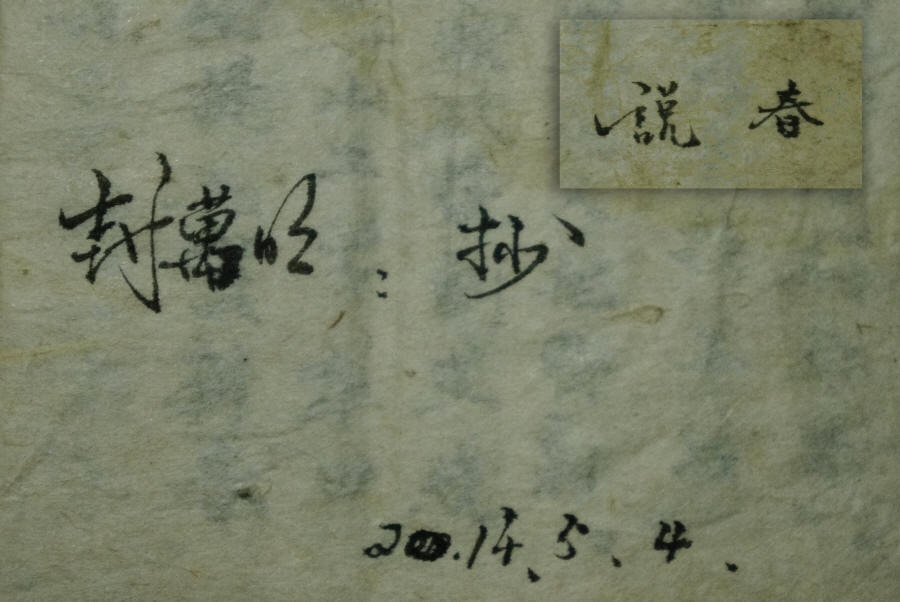 説春
封萬明：抄
20.14、5、4.